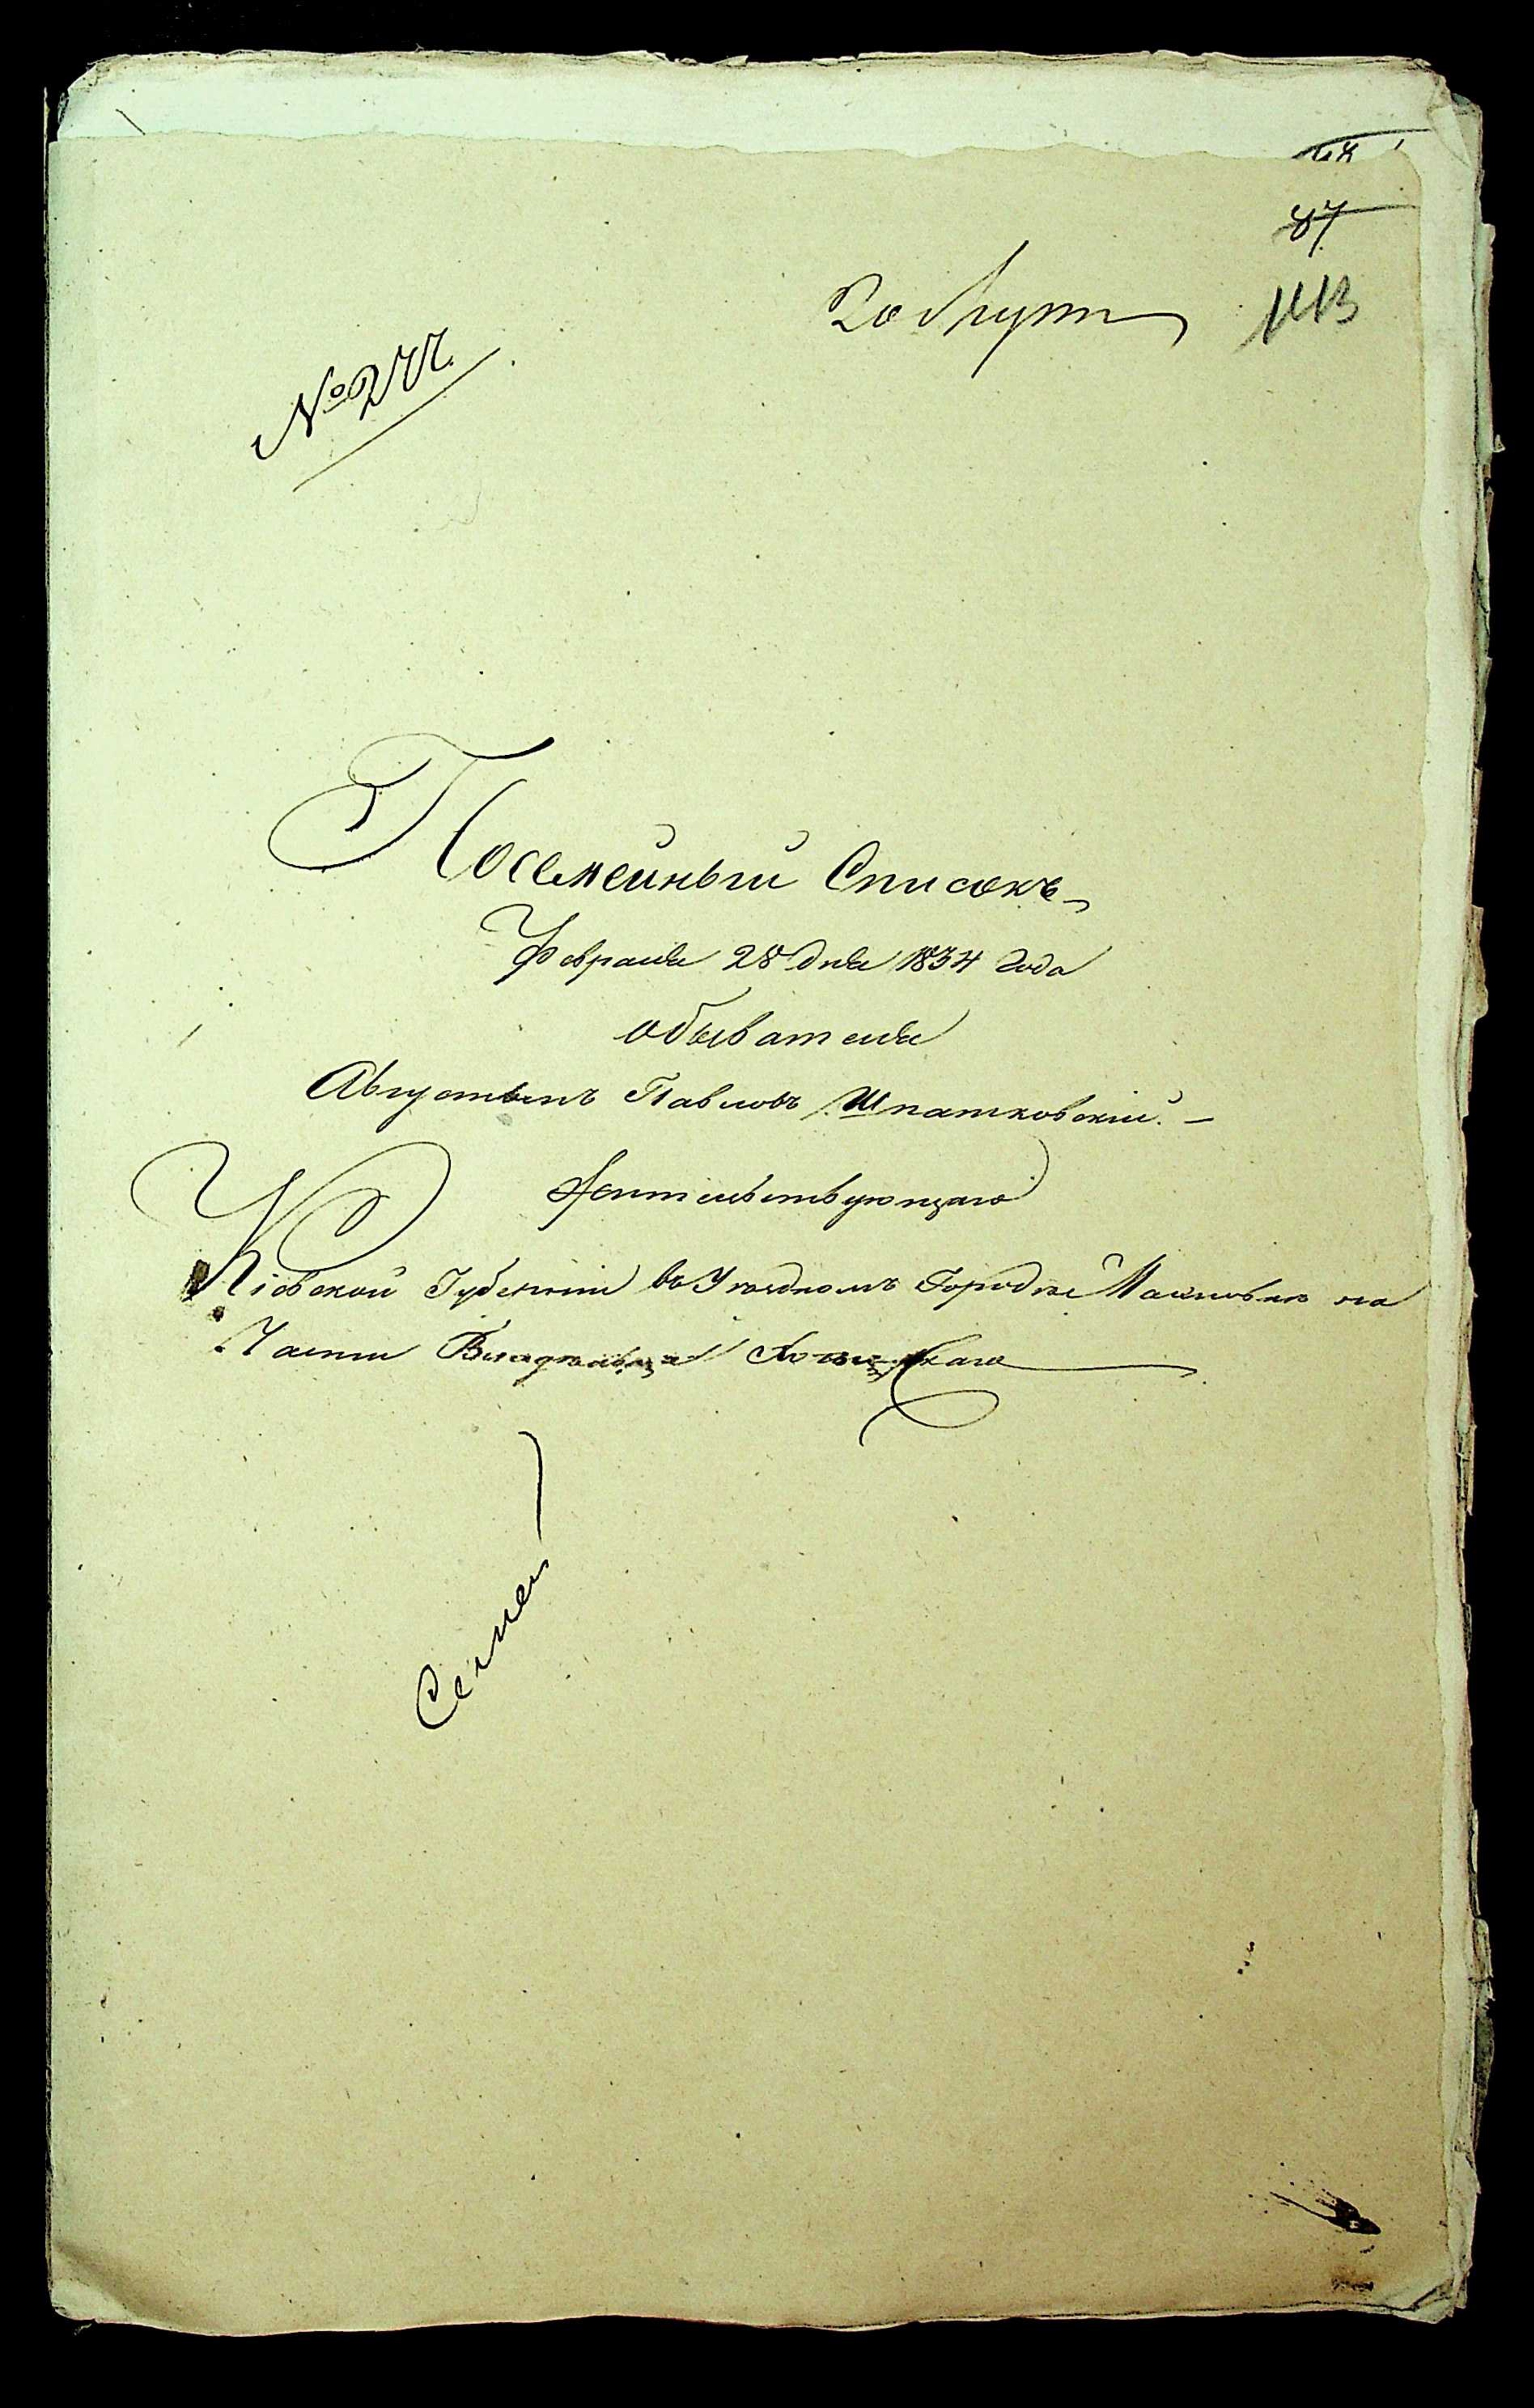 87
113
№ 277.
Посемейный Списокъ
Февраля 28 дня 1834 года
обывателя
Августынъ Павловъ Шпатковскій. —
Жительствующаго
Кіевской Губерніи въ Уездномъ Городке на
Части Владельца